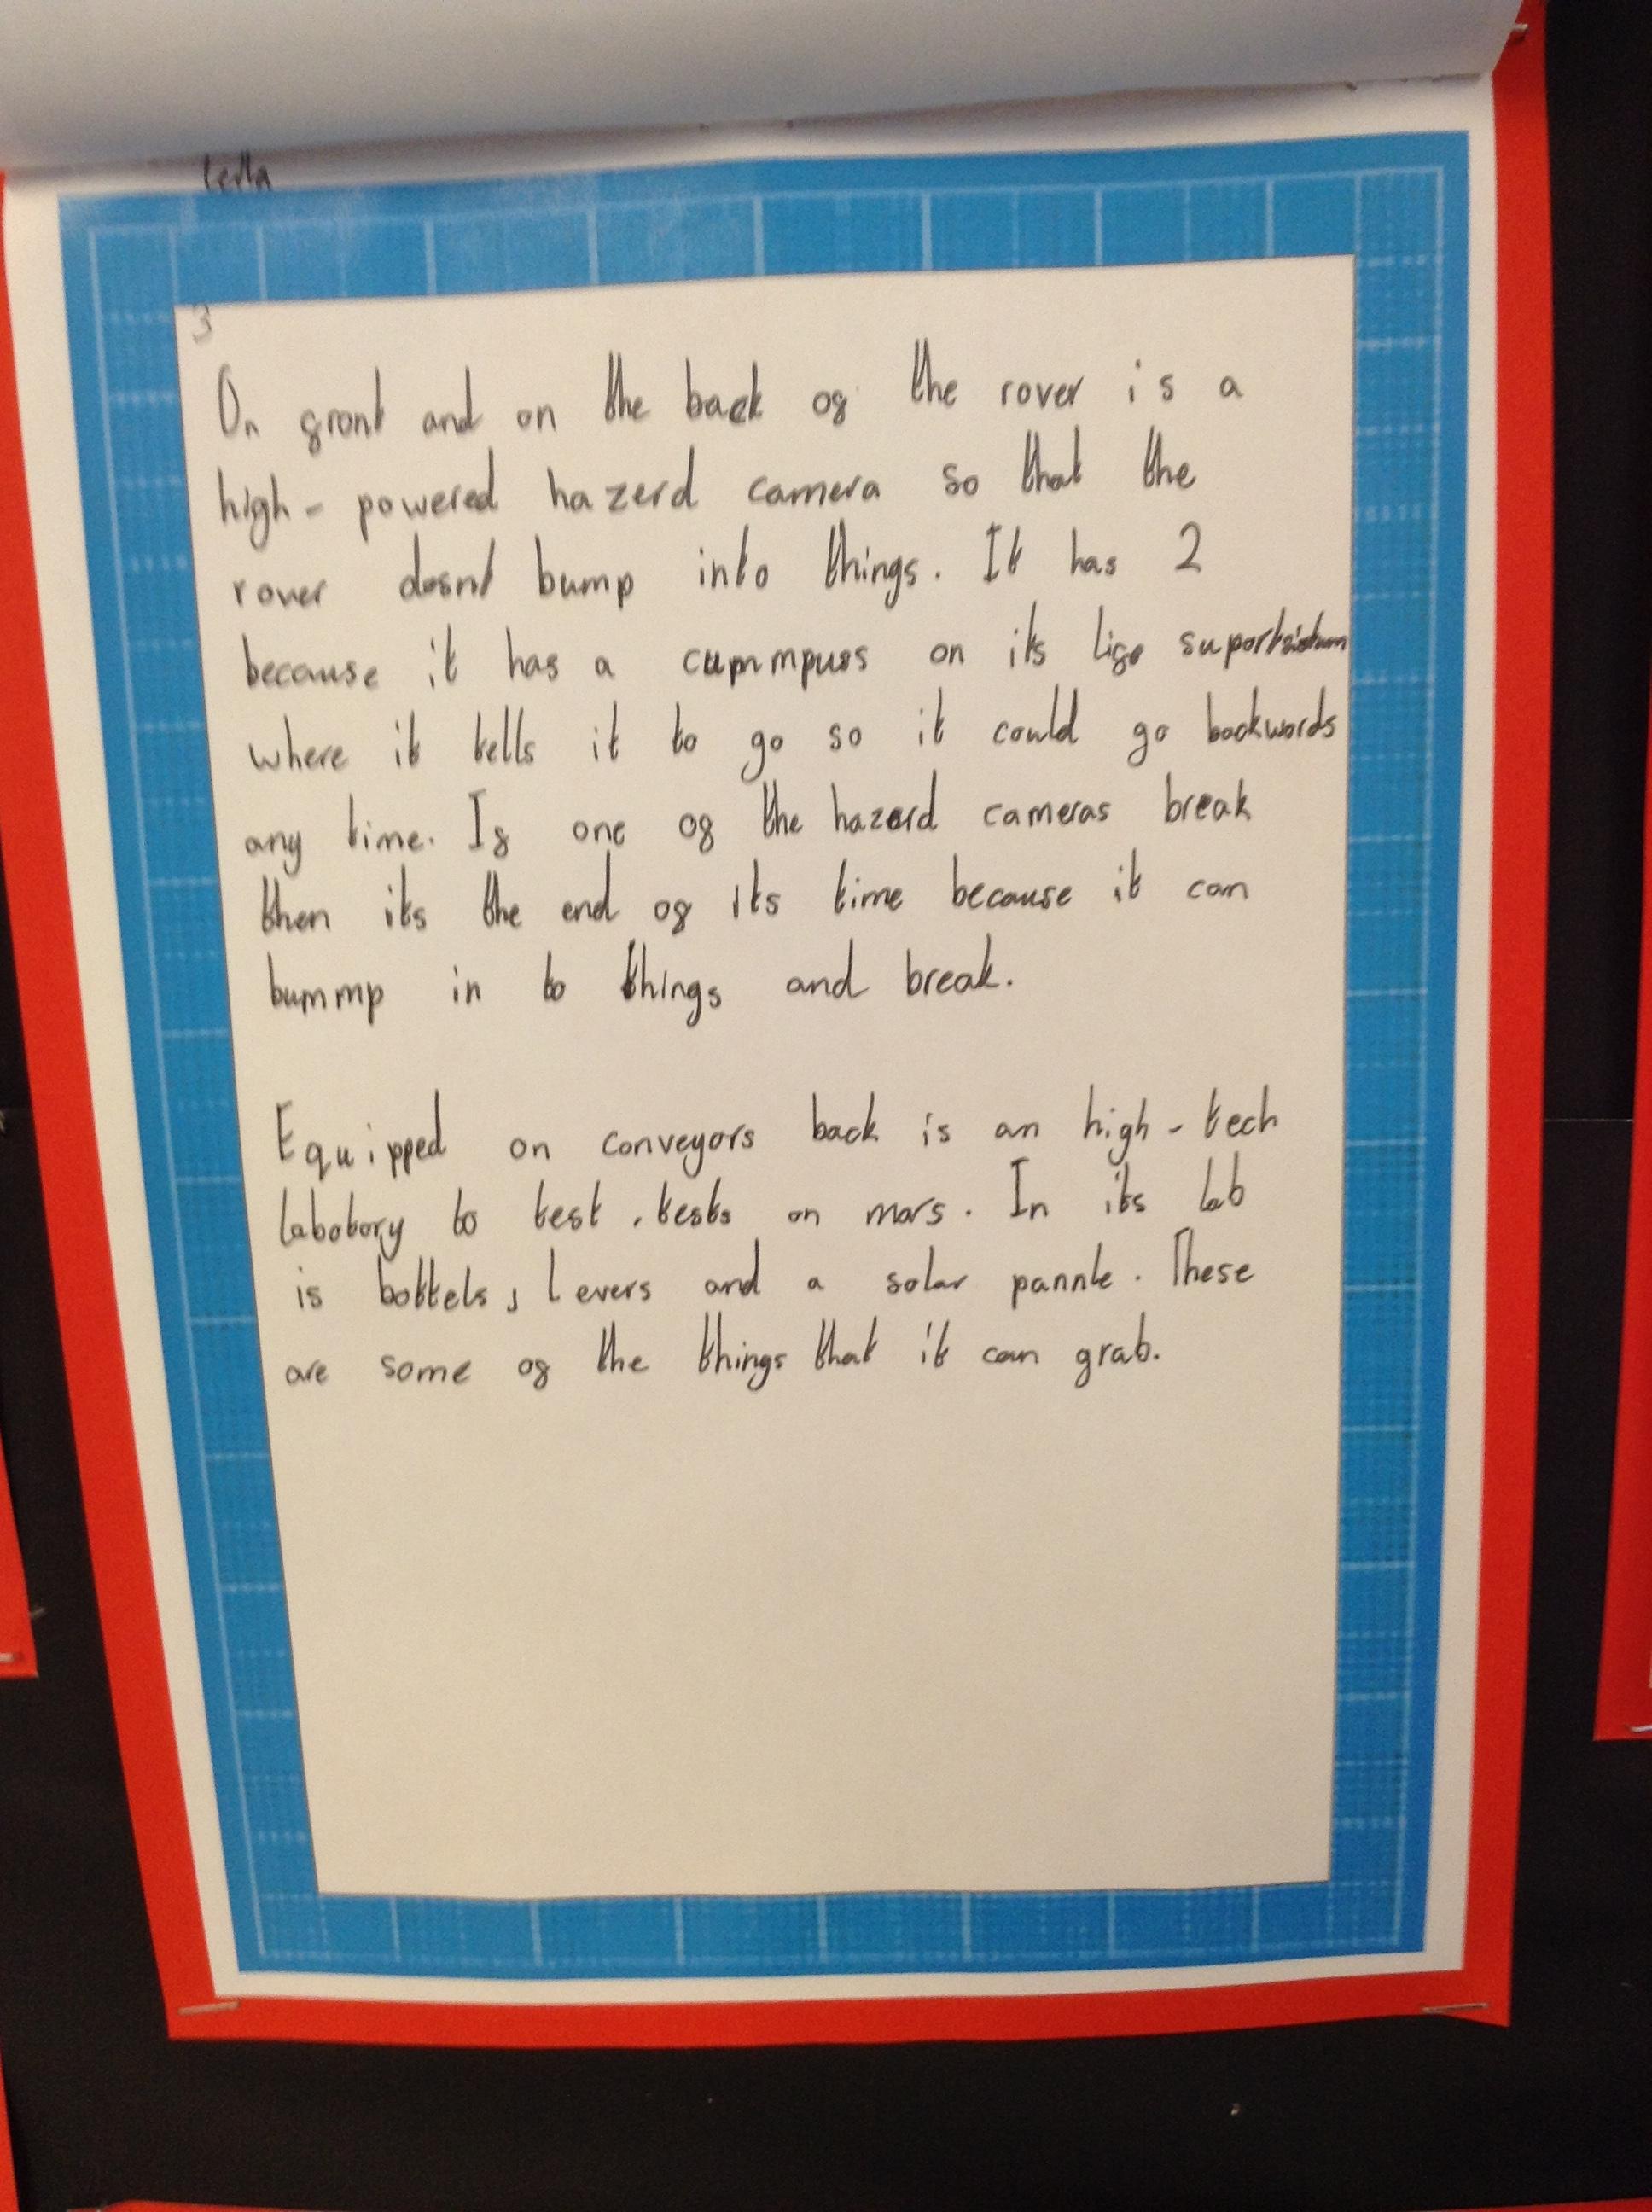 3
On front and on the back of the rover is a
high-powered hazerd camera so that the
rover dosnt bump into things. It has 2
because it has a cummpuss on its life suportsistum
where it tells it to go so it could go backwords
any time. If one of the hazerd cameras break
then its the end of its time because it can
bummp in to things and break.
Equipped on conveyors back is an high-tech
labotory to test, tests on mars. In its lab
is bottels, levers and a solar pannle. These
are some of the things that it can grab.